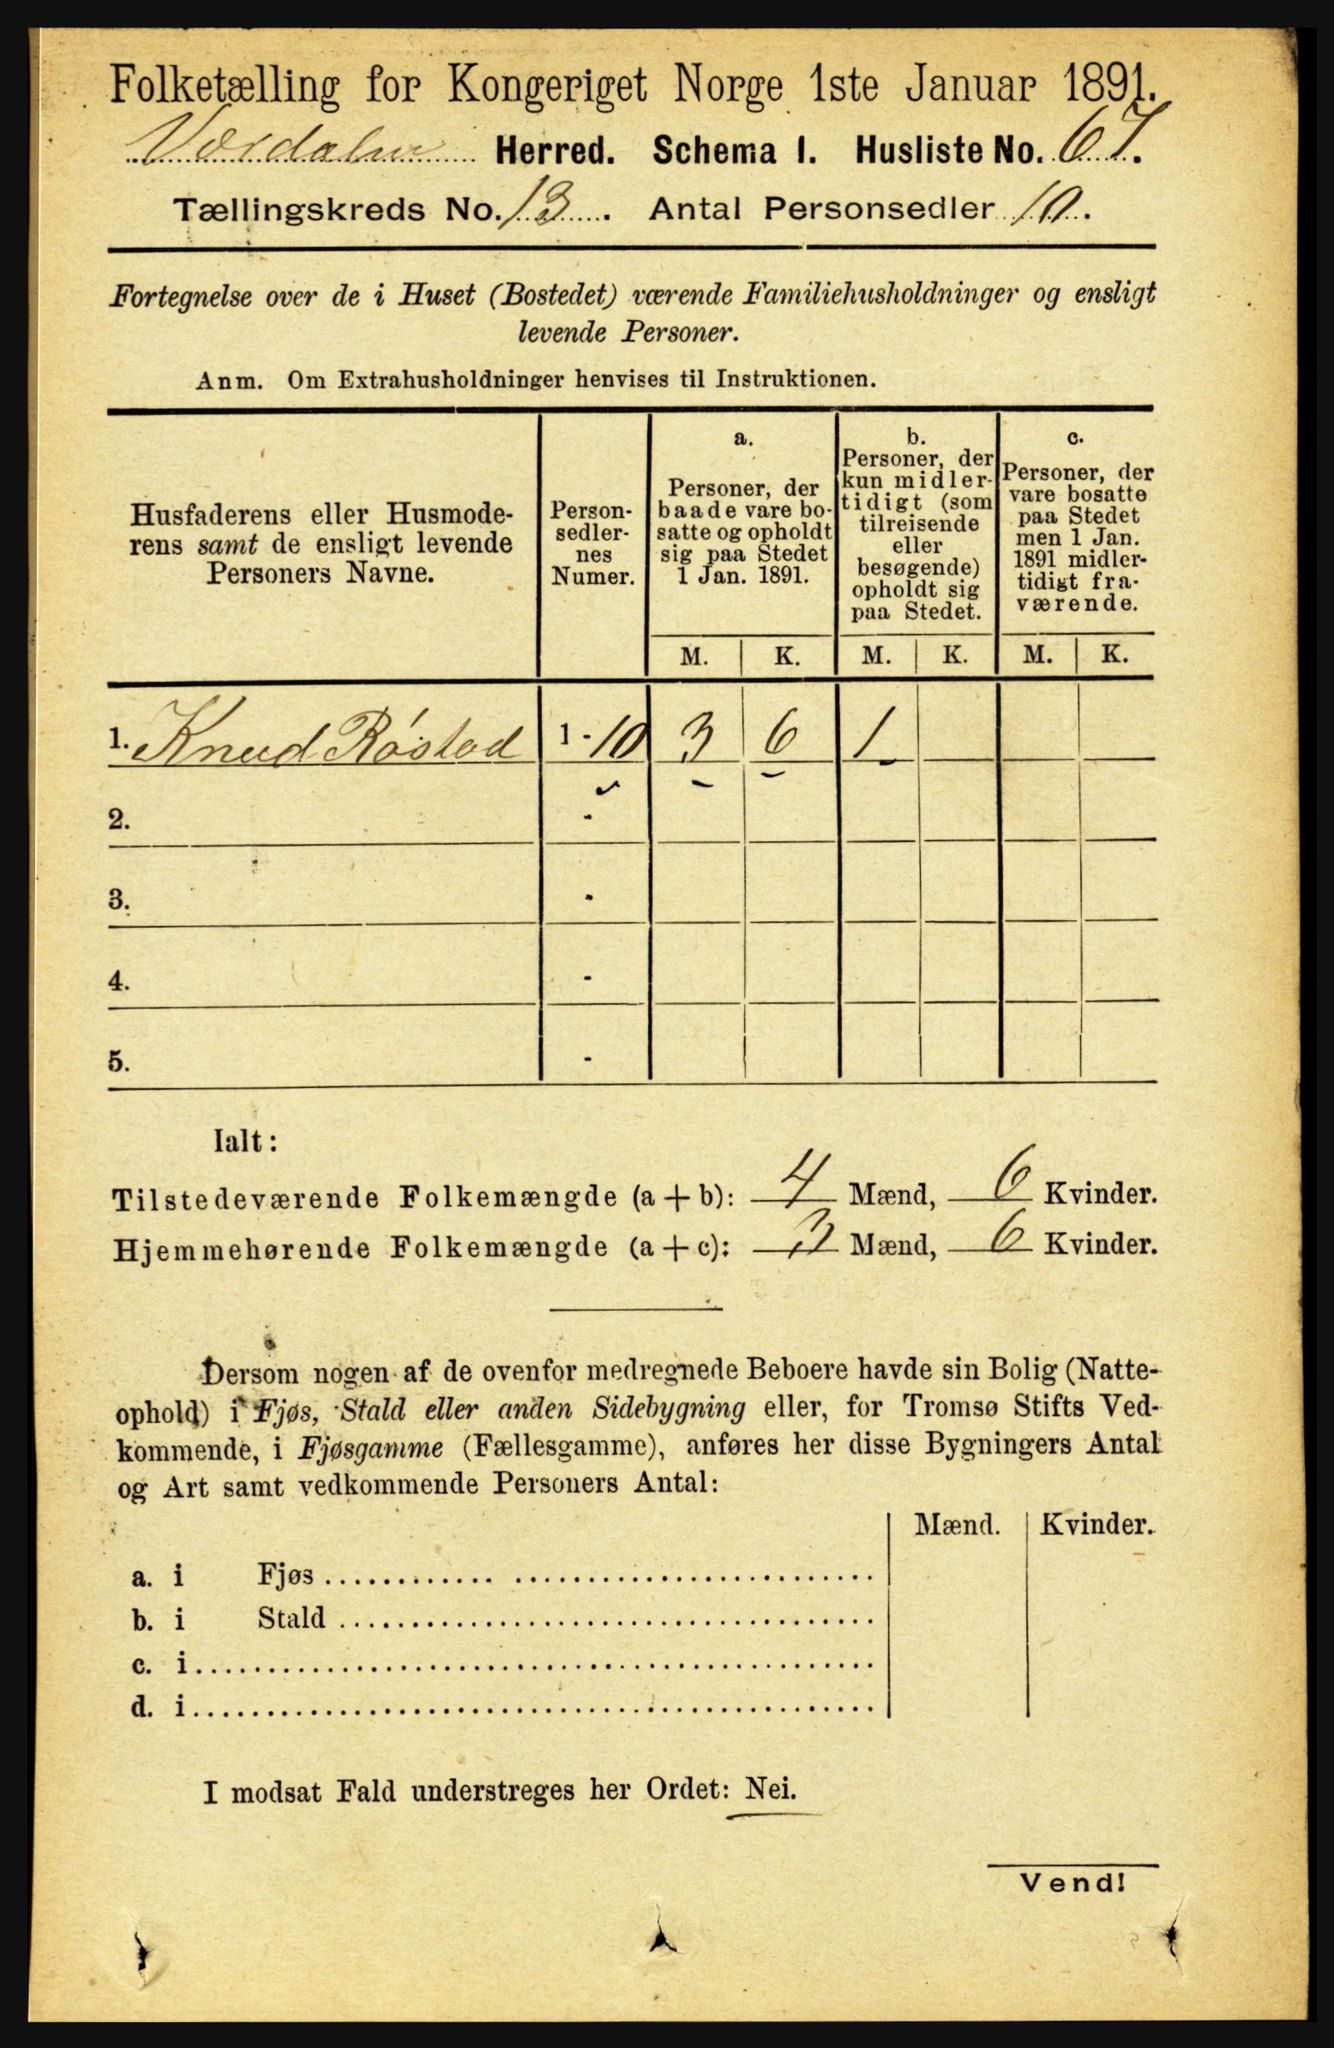 Folketælling for Kongeriget Norge 1ste Januar 1891.
Værdalen Herred. Schema I. Husliste No. 67.
Tællingskreds No. 13. Antal Personsedler 10.
Fortegnelse over de i Huset (Bostedet) værende Familiehusholdninger og ensligt
levende Personer.
Anm. Om Extrahusholdninger henvises til Instruktionen.
Husfaderens eller Husmode-
rens samt de ensligt levende
Personers Navne.
Person-
sedler-
nes
Numer.
a.
Personer, der
baade vare bo-
satte og opholdt
sig paa Stedet
1 Jan. 1891.
b.
Personer, der
kun midler-
tidigt (som
tilreisende
eller
besøgende)
opholdt sig
paa Stedet.
c.
Personer, der
vare bosatte
paa Stedet
men 1 Jan.
1891 midler-
tidigt fra-
værende.
M. K. M. K. M. K.
1. Knud Röstad 1 - 10 3 6 1
2. -
3. -
4. -
5. -
Ialt:
Tilstedeværende Folkemængde (a + b): 4 Mænd, 6 Kvinder.
Hjemmehørende Folkemængde (a + c): 3 Mænd, 6 Kvinder.
Dersom nogen af de ovenfor medregnede Beboere havde sin Bolig (Natte-
ophold) i Fjøs, Stald eller anden Sidebygning eller, for Tromsø Stifts Ved-
kommende, i Fjøsgamme (Fællesgamme), anføres her disse Bygningers Antal
og Art samt vedkommende Personers Antal:
Mænd. Kvinder.
a. i Fjøs
b. i Stald
c. i
d. i
I modsat Fald understreges her Ordet: Nei.
Vend!